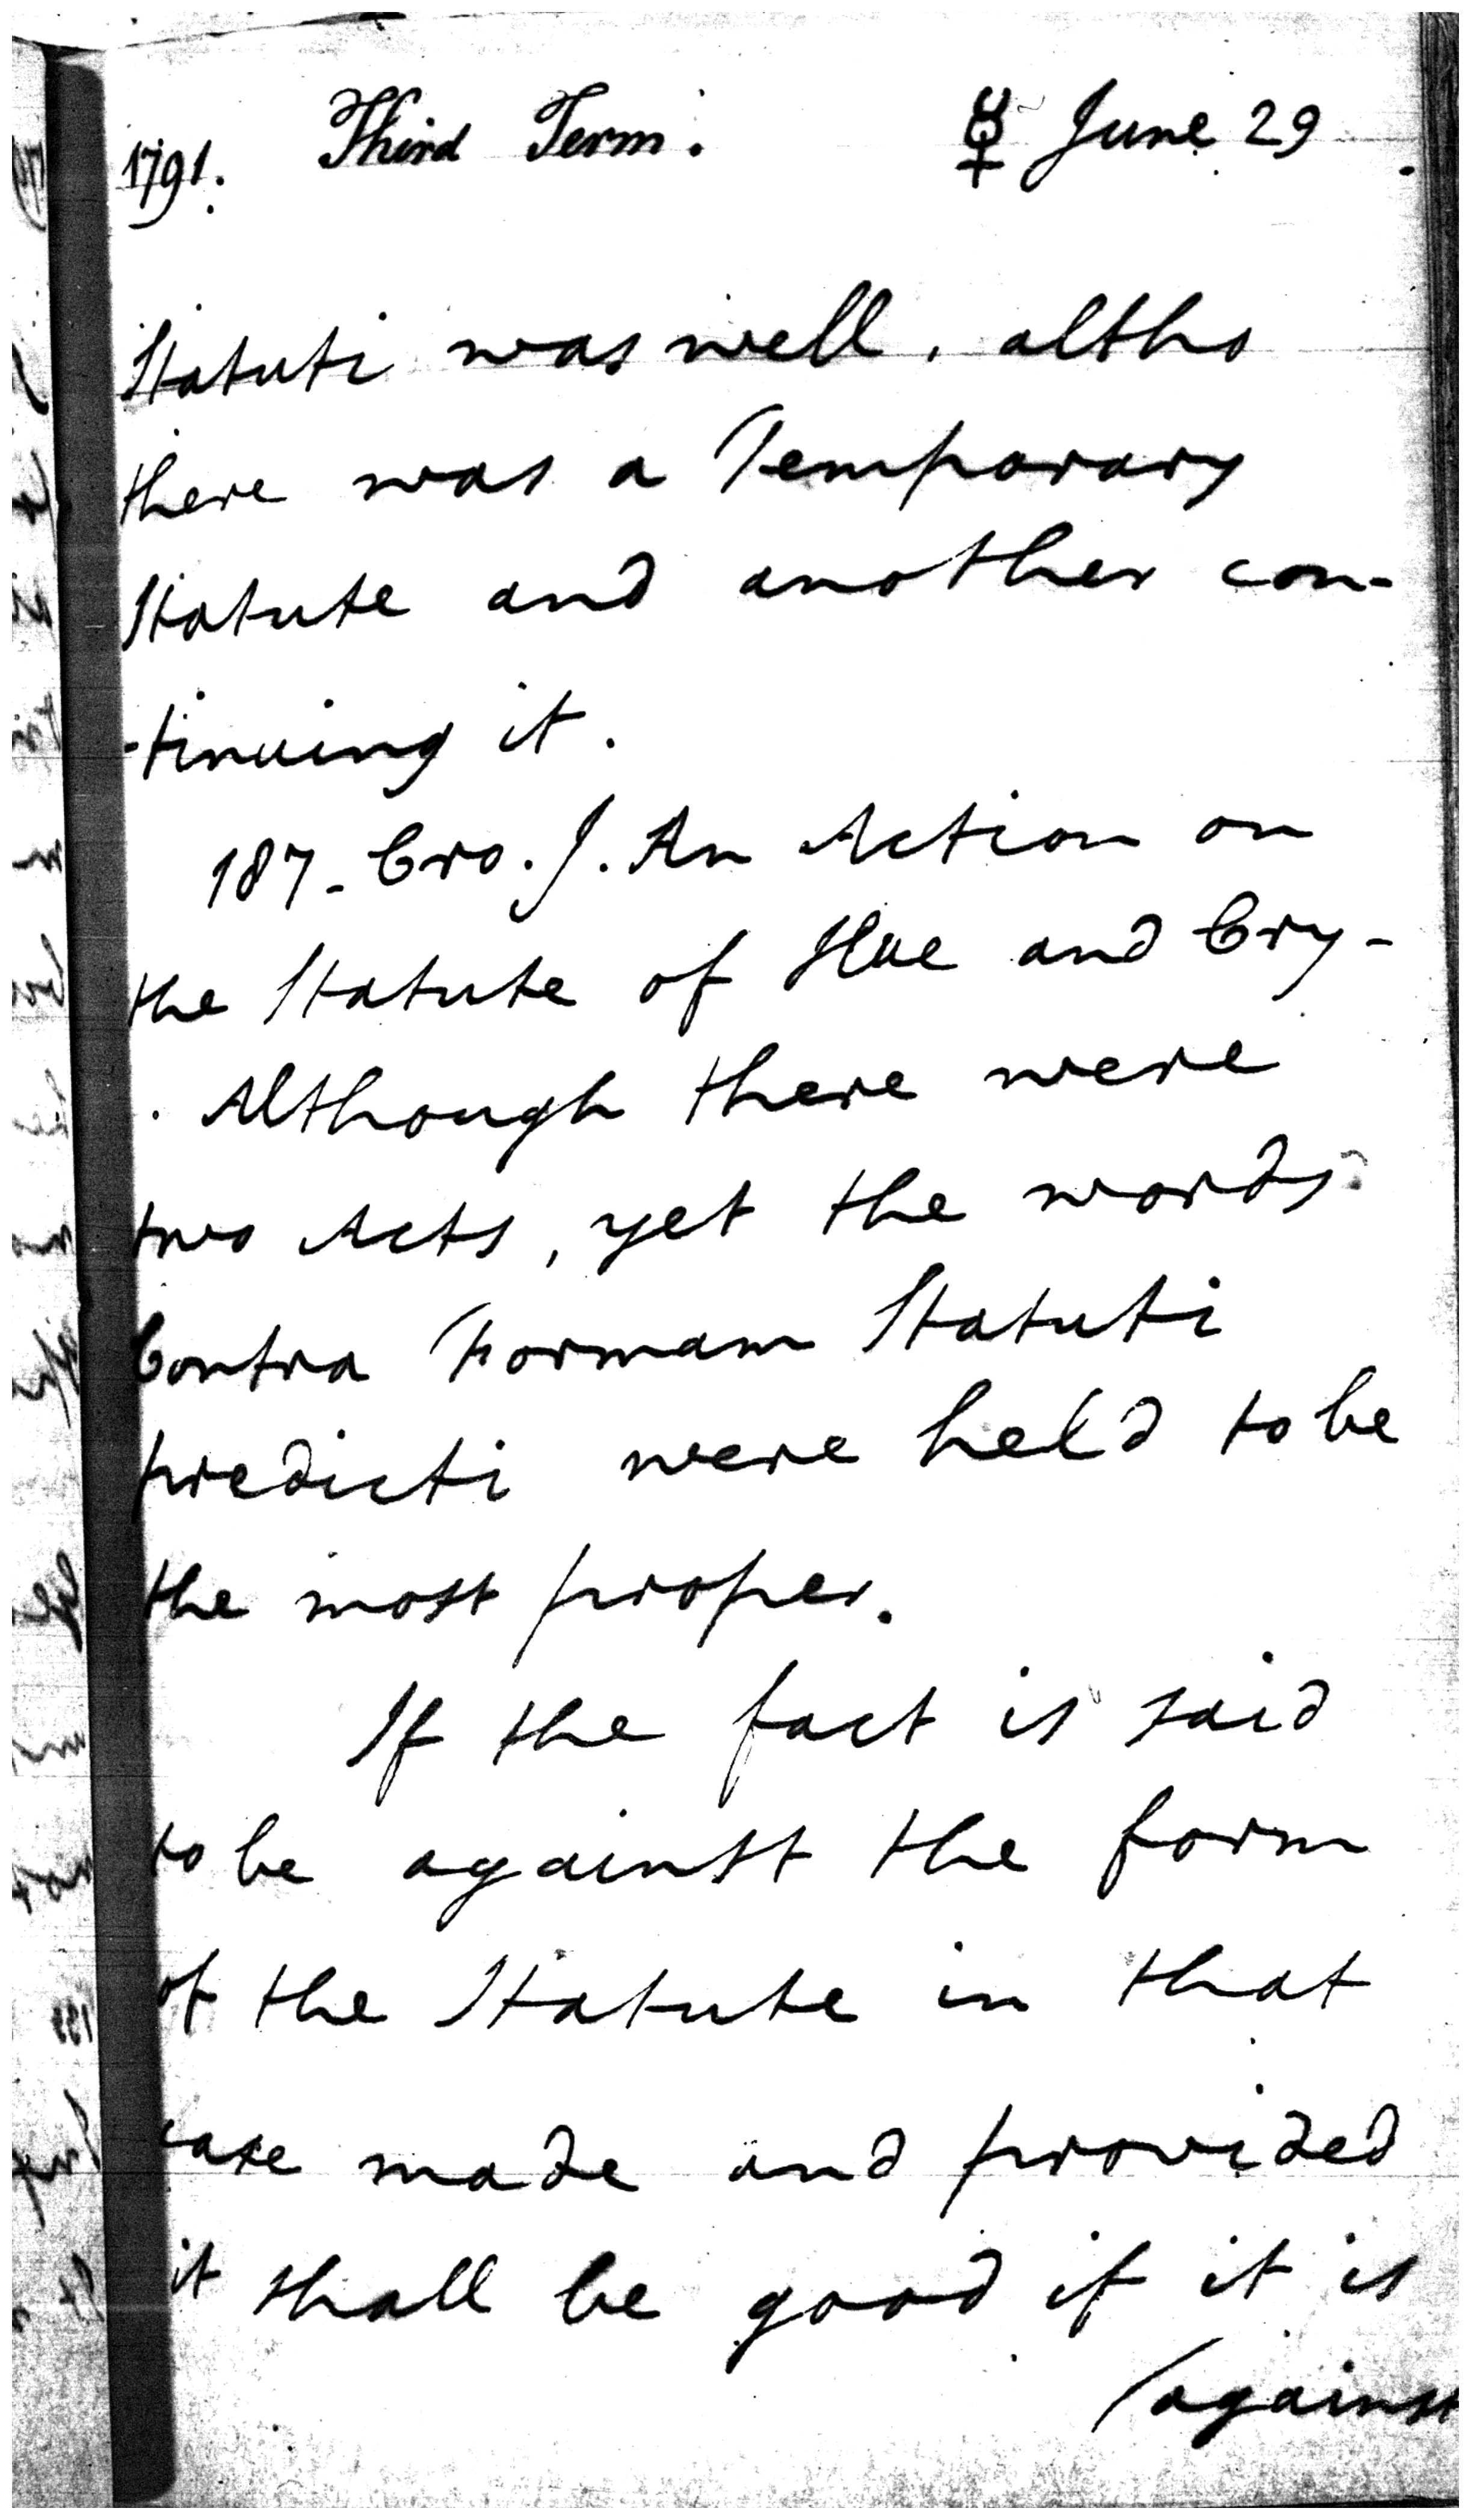 1791. Third Term. ☿ June 29
Statuti was well, altho
there was a Temporary
Statute and another con-
-tinuing it.
187 - Cro. J. An Action on
the Statute of Hue and Cry -
. Although there were
two Acts, yet the words
Contra Formam Statuti
predicti were held to be
the most proper.
If the fact is said
to be against the form
of the Statute in that
case made and provided
it shall be good if it is
(against